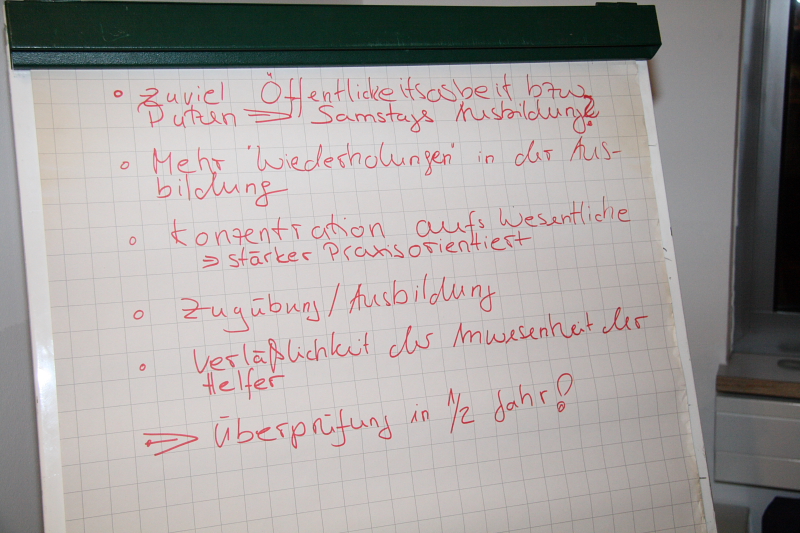 ° Zuviel Öffentlickeitsarbeit bzw
Putzen => Samstags Ausbildung?
° Mehr "Wiederholungen" in der Aus-
bildung
° Konzentration aufs Wesentliche
=> stärker Praxisorientiert
° Zugübung / Ausbildung
° Verläßlichkeit der Anwesenheit der
Helfer
=> Überprüfung in 1/2 Jahr!